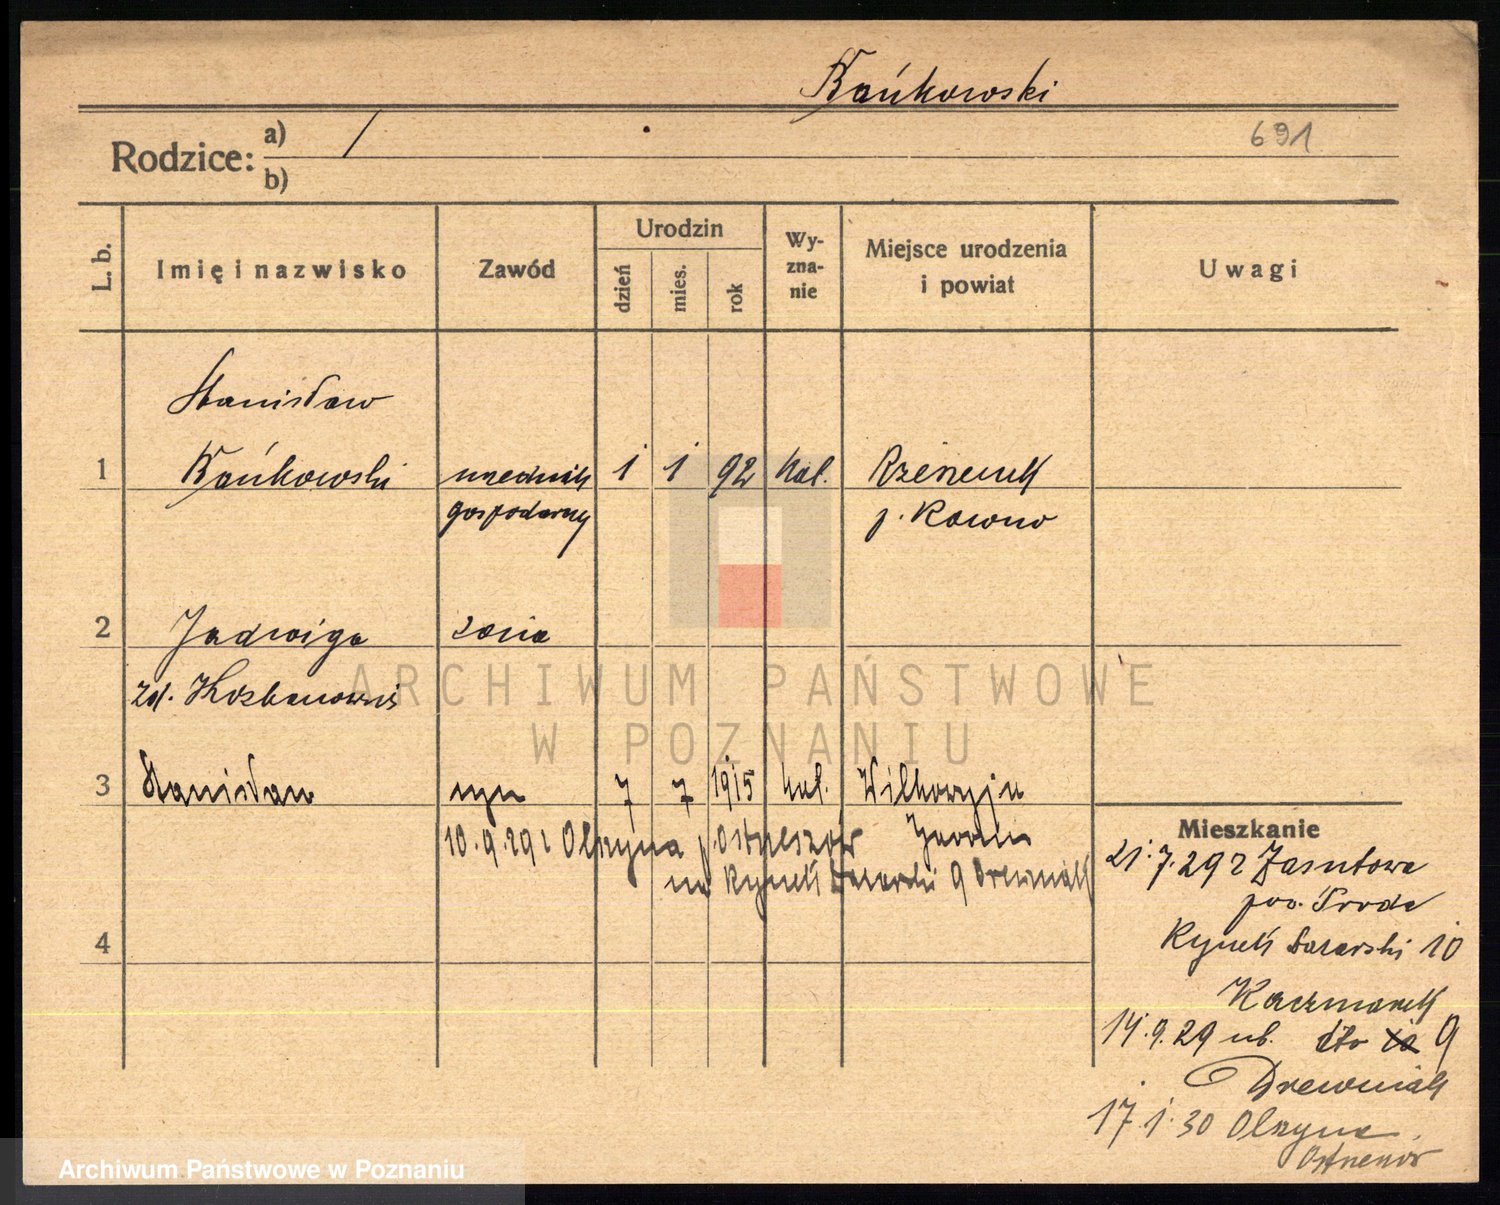 Bańkowski
691
Rodzice: a) /
b)
L. b. Imię i nazwisko Zawód Urodzin dzień mies. rok Wyznanie Miejsce urodzenia i powiat Uwagi
Stanisław
1 Bańkowski urzednik 1 1 92 kat.
gospodarczy p. Kowno
2 Jadwiga żona
zd.
3 Stanisław syn 7 7 1915 kat. Wilkowyja
10.9.29 Olszyna p. Ostrzeszów Jarocin
na Rynek Łazarski 9 Drewniak
4
Mieszkanie
21.7.29 z Zasutowa
pow. Środa
Rynek Łazarski 10
Kaczmarek
14.9.29 ub. dto 9
Drewniak
17.1.30 Olszyna
Ostrzeszów
ARCHIWUM PAŃSTWOWE
W POZNANIU
Archiwum Państwowe w Poznaniu